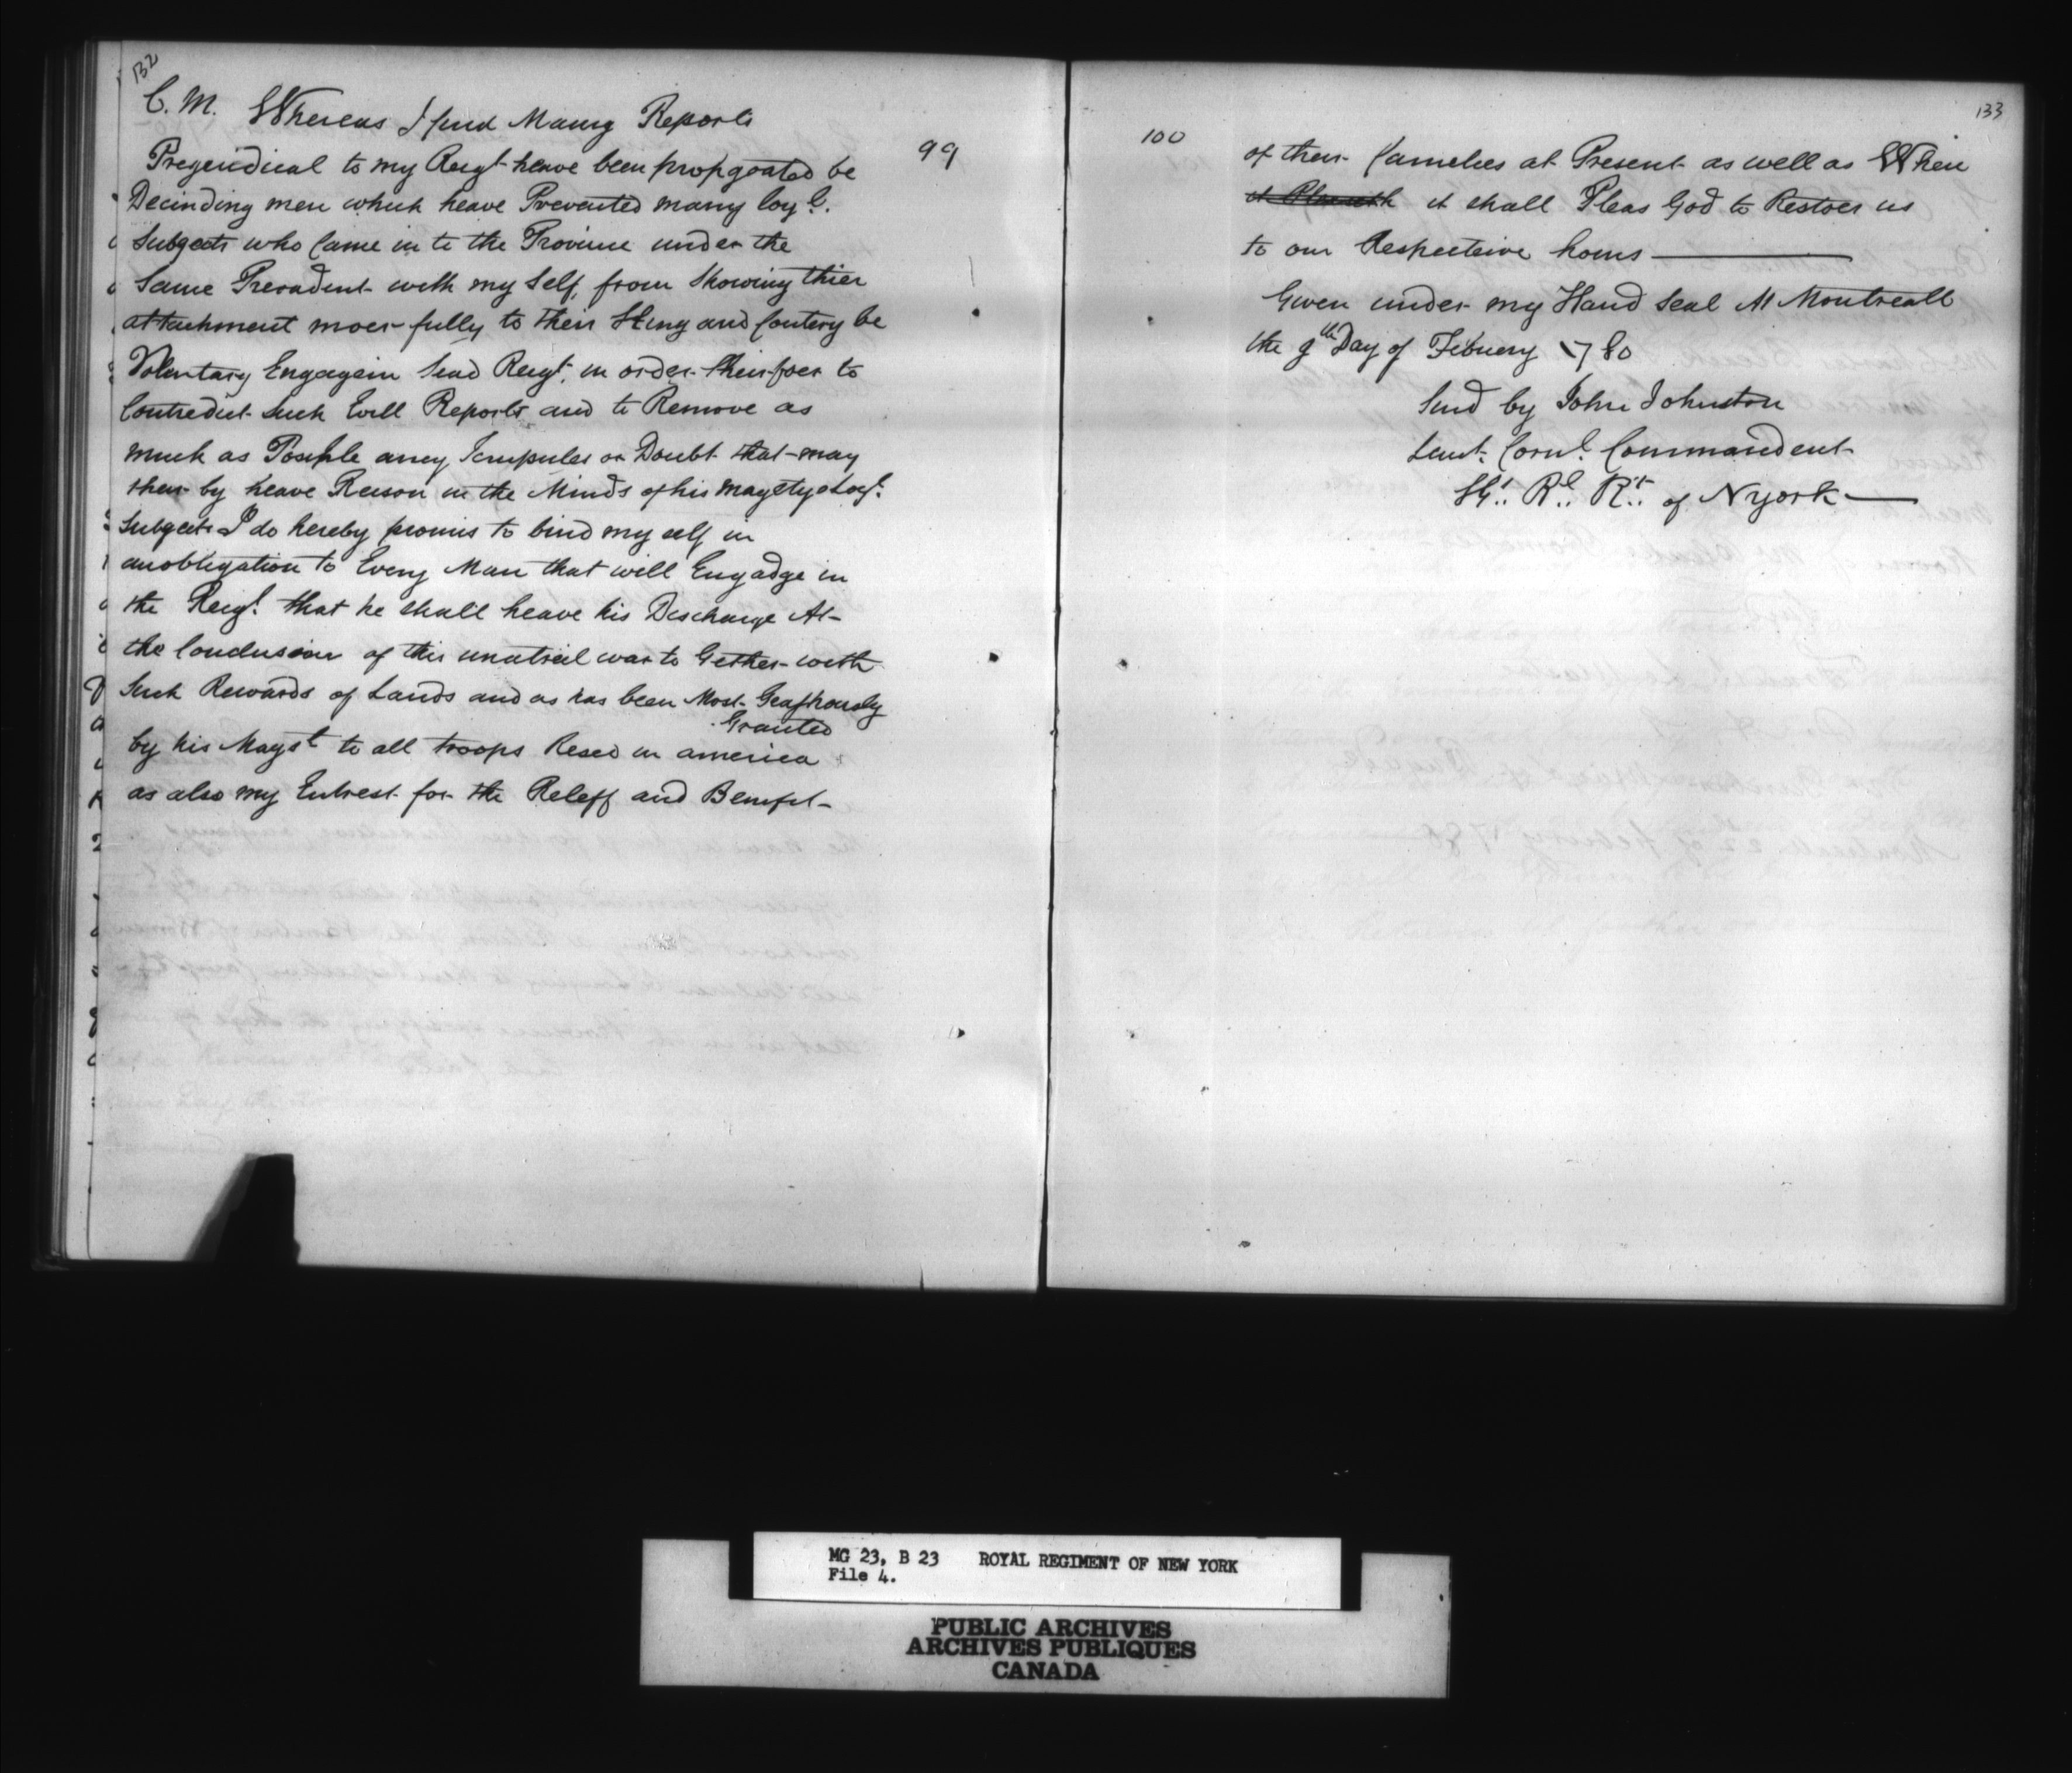 132
C. M. Whereas I find Many Reports
99
Pregeidical to my Reigt heave been propgoated be
Decinding men which heave Prevented many loyl.
Subgects who Came in to the Province under the
Same Presadent with my Self, from Showing thier
attachment moer fully to their King and Contery be
Volentary Engagein Said Reigt. in order their foer to
Contredict Such Evill Reports and to Remove as
much as Posible aney Scrupules or Doubt that may
ther by heave Reison in the Minds of his Magestys Loyl.
Subgects I do hereby promis to bind my self in
an obligation to Every Man that will Engadge in
the Reigt. that he shall heave his Discharge At
the Conclusion of this unatreil war to Gether with
Such Rewards of Lands and as has been Most Grashously
Granted
by his Mayst to all troops Resed in america
as also my Entrest for the Releff and Benifit
133
100
of their famelies at Present as well as When
it shall Pleas God to Restoer us
to our Respecteive homs
Given under my Hand Seal At Montreall
the 9th Day of Febuery 1780
Sind by John Johnston
Leut. Cornl. Commandent
Kt. Rl. Rt. of N york
MG 23, B 23 ROYAL REGIMENT OF NEW YORK
File 4.
PUBLIC ARCHIVES
ARCHIVES PUBLIQUES
CANADA